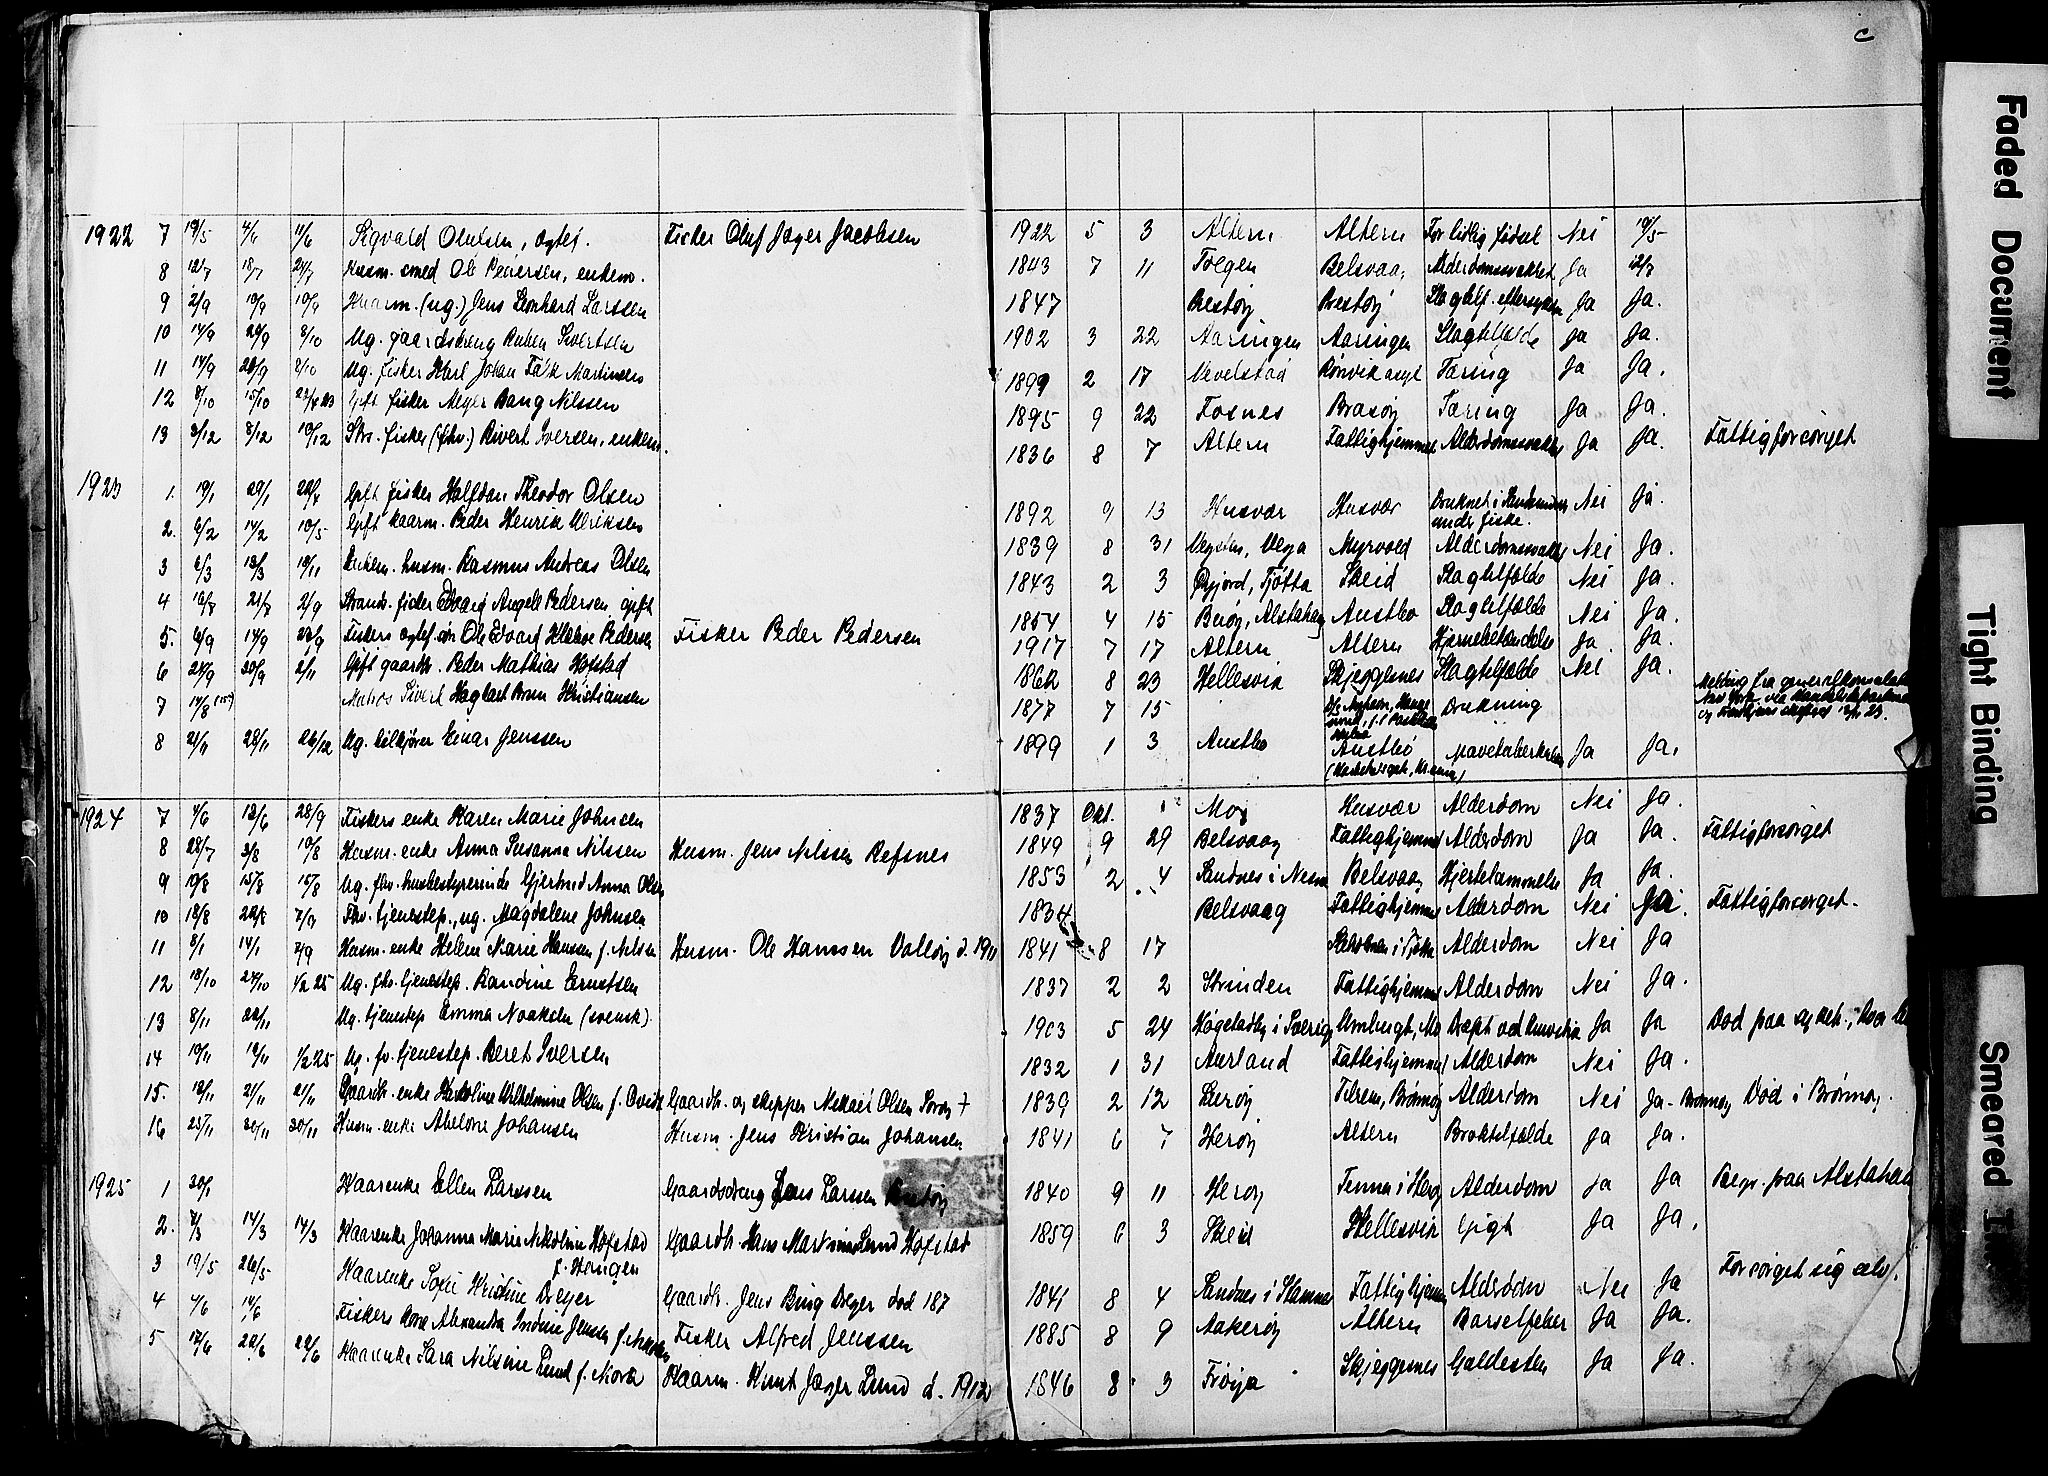 c
1922 7 19/5 4/6 11/6 Sigvald Olufsen, ægtef. Fisker Oluf Jæger Jacobsen 1922 5 3 Altern Altern For tidlig fødsel Nei 19/5
8 12/7 18/7 24/7 Husm. smed Ole Pedersen, enkem. 1843 7 11 Belsvaag Alderdomssvakhet Ja 12/7
9 2/9 10/9 10/9 Kaarm. (ug.) Jens Leonhard Larssen 1847 Prestøy Prestøy Slagtilf. Ja Ja.
10 14/9 20/9 8/10 Ug. gaardsdreng Ruben Sivertsen 1902 3 22 Aaringen Aaringen Slagtilfælde Ja Ja.
11 14/9 20/9 8/10 Ug. fisker Karl Johan Falk Martinsen 1899 2 17 Vevelstad Rønvik asyl Tæring Ja Ja.
12 8/10 15/10 22/4 23 Gift fisker Meyer Bang Nilssen 1895 9 22 Fosnes Brasøy Tæring Ja Ja.
13 3/12 8/12 10/12 Str. fisker (fhv.) Sivert Iversen, enkem. 1836 8 7 Altern Fattighjemmet Alderdomssvakhet Ja Ja. Fattigforsørget
1923 1. 19/1 29/1 22/4 Gift fisker Halfdan Theodor Olsen 1892 9 13 Husvær Husvær Druknet i under fiske. Nei Ja.
2. 6/2 14/2 10/5 Gift kaarm. Peder Henrik Ulriksen 1839 8 31 Vega Myrvold Alderdomssvakhet Nei Ja.
3 6/3 13/3 18/11 Enkem. husm. Rasmus Andreas Olsen 1843 2 3 Tjøtta Skeid Slagtilfælde Nei Ja.
4 16/7 21/7 2/9 Strands. fisker Edvard Angell Pedersen gift 1854 4 15 Alstahaug Austbø Slagtilfælde Nei Ja.
5. 6/9 14/9 22/9 Fiskers ægtef. søn Ole Edvard Pedersen Fisker Peder Pedersen 1917 7 17 Altern Altern Hjernebetændelse Ja. Ja.
6 24/9 30/9 2/11 Gift gaardbr. Peder Mathias Hofstad 1862 8 23 Hellesvik Skjeggesnes Slagtilfælde Nei Ja.
7 14/8 Matros Sivert Hagbart Brun Kristiansen 1877 7 15 Drukning Melding fra generalkonsulatet New York via
8 21/11 28/11 26/12 Ug. bilkjører Einar Jenssen 1899 1 3 Austbo Austbø Mavetuberkulose Ja Ja.
1924 7 4/6 13/6 28/9 Fiskers enke Karen Marie Johnsen 1837 Okt. 1 Moy Husvær Alderdom Nei Ja.
8 28/7 3/8 10/8 Husm. enke Anna Susanna Nilssen Husm. Jens Nilssen Refsnes 1849 9 29 Belsvaag Fattighjemmet Alderdom Ja Ja. Fattigforsørget
9 10/8 15/8 15/8 Ug. fhv. husbestyrerinde Gjertrud Anna Olsen 1853 2 4 Sandnes i Nesna Belsvaag Hjertelammelse Ja Ja.
10 18/8 22/8 7/9 Fhv. tjenestep., ug. Magdalene Johnsen 1834 Belsvaag Fattighjemmet Alderdom Nei Ja. Fattigforsørget.
11 8/1 14/1 2/9 Husm. enke Helene Marie Hansen f. Nilsen Husm. Ole Hanssen Valløy d. 1911 1841 8 17 Alderdom Nei Ja
12 18/10 24/10 1/2 25 Ug. fhv. tjenestep. Randine Ernstsen 1837 2 2 Strinden Fattighjemmet Alderdom Nei Ja.
13 8/11 22/11 Ug. tjenestep Emma Noaksen (svensk) 1903 5 24 i Sverig Dræpt ved Ja Ja Død paa
14 10/11 18/11 1/2 25 Ug. fv. tjenestep. Beret Iversen 1832 1 31 Aurland Fattighjemmet Alderdom Nei Ja.
15. 12/11 21/11 21/11 Gaardbr. enke Karoline Wilhelmine Olsen f. Gaardbr. og skipper Nikolai Olsen Sørøy † 1839 2 12 Lurøy Tilrem, Brønnøy Alderdom Nei Ja - Brønnøy Død i Brønnøy.
16 25/11 30/11 30/11 Husm. enke Abelone Johansen Husm. Jens Kristian Johansen 1841 6 7 Herøy Altern Broktilfælde Ja Ja.
1925 1 30/1 Kaarenke Ellen Larssen Gaardsdreng Jens Larssen 1840 9 11 Herøy Tenna i Herøy Alderdom Ja Ja Begr. paa Alstahaug
2. 7/3 14/3 14/3 Kaarenke Johanna Marie Nikoline Hofstad f. Hougen Gaardbr. Hans Martinus Lund Hofstad 1859 6 3 Skeid Hellesvik Gigt Ja Ja.
3 19/5 26/5 Kaarenke Sofie Kristine Dreyer Gaardbr. Jens Bing Dreyer død 187 1841 8 4 Sandnes i Stamnes Fattighjem Alderdom Nei Ja Forsørget sig selv.
4 4/6 14/6 Fiskers kone Alexandra Indine Jenssen f. Fisker Alfred Jenssen 1885 8 9 Aakerøy Altern Barselfeber Ja Ja.
5 17/6 22/6 22/6 Kaarenke Sara Nilsine Lund f. Kaarm. Knut Jæger Lund d. 1912 1846 8 3 Frøya Skjeggesnes Galdesten Ja Ja.
Faded Document
Tight Binding
Smeared Ink